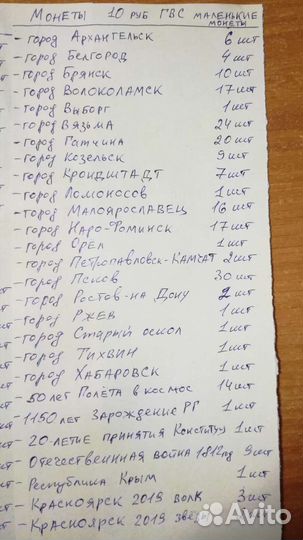 Монеты 10 руб ГВС маленькие монеты
- город Архангельск 6 шт
- город Белгород 4 шт
- город Брянск 10 шт
- город Волоколамск 17 шт
- город Выборг 1 шт
- город Вязьма 24 шт
- город Гатчина 20 шт
- город Козельск 9 шт
- город Крондштадт 7 шт
- город Ломоносов 1 шт
- город Малоярославец 16 шт
- город Наро-Фоминск 17 шт
- город Орел 1 шт
- город Петропавловск-Камчат 2 шт
- город Псков 30 шт
- город Ростов-на Дону 2 шт
- город Ржев 1 шт
- город Старый оскол 1 шт
- город Тихвин 1 шт
- город Хабаровск 1 шт
- 50 лет Полёта в космос 14 шт
- 1150 лет Зарождение РГ 1 шт
- 20-летие принятия Конституц 1 шт
- Отечественная война 1812год 9 шт
- Республика Крым 1 шт
- Красноярск 2019 волк 3 шт
- Красноярск 2019
Avito